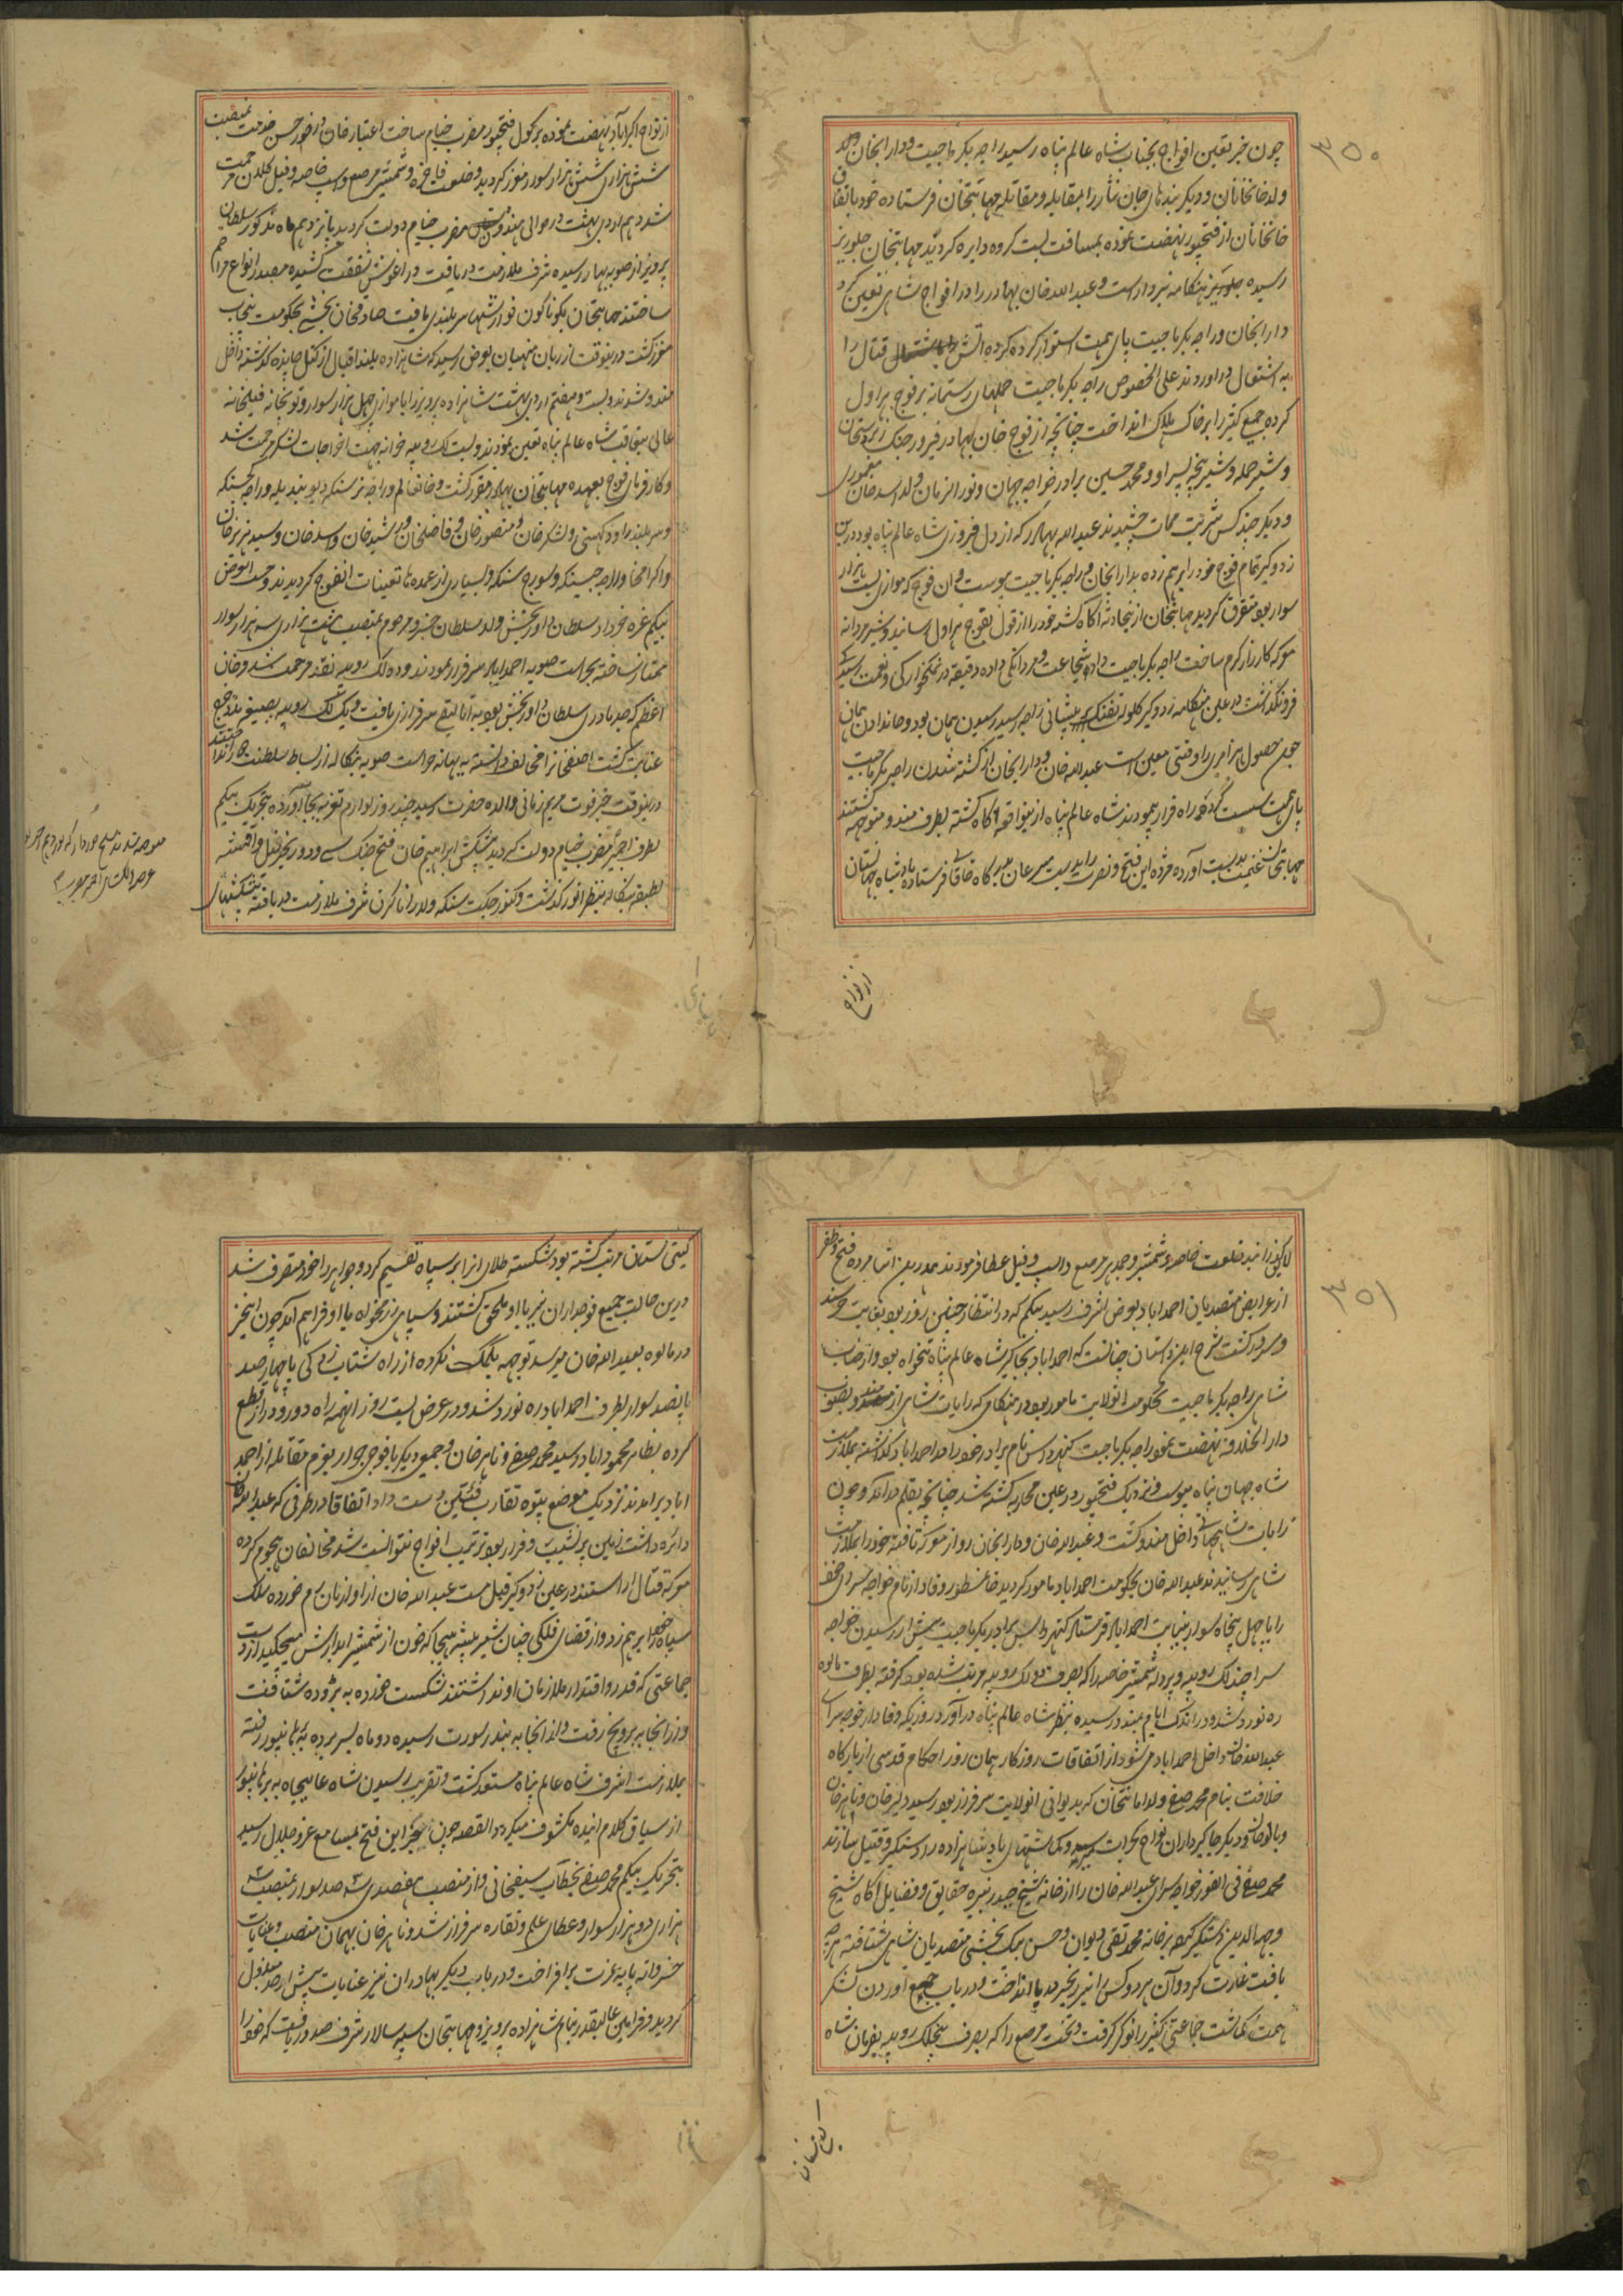 ۳۵۰
چون خبر تعین افواج بجناب شاه عالم پناه رسید راجه بکرماجیت و داراب خان
ولد خانخانان و دیگر بندهای جان نثار را بمقابله و مقاتله مهابتخان فرستاده خود باتفاق
خانخانان از فتحپور نهضت نموده بمسافت بست کروه دایره کردند مهابتخان جلوریز
رسیده هنگامه نبرد آراست و عبدالله خان بهادر را در افواج شاهی تعین کرد
داراب خان و راجه بکرماجیت پای همت استوار کرده آتش قتال را
به اشتعال در آوردند علی الخصوص راجه بکرماجیت حملهای رستمانه بر فوج هراول
کرده جمع کثیر را بر خاک هلاک انداخت چنانچه از فوج خان بهادر فیروز جنک زبردستخان
و شیر حمله و شیر پنجه پسر او و محمد حسین برادر خواجه جهان و نورالزمان ولد اسد خان معموری
و دیگر چند کس شربت ممات چشیدند عبدالله بهادر که از دل فیروزی شاه عالم پناه بود درین
زد و گیر تمام فوج خود را برهم زده بداراب خان و راجه بکرماجیت پیوست و آن فوج که موازی بست هزار
سوار بود متفرق گردید مهابتخان ازین حادثه آگاه گشته خود را از قول بفوج هراول رسانید و شیر مردانه
معرکه کارزار گرم ساخت راجه بکرماجیت داد شجاعت و مردانگی داده دقیقه در نمکخوارگی و نعمت رسیدگی
فرونگذاشت در عین هنگامه زد و گیر گلوله تفنگ به پیشانی راجه رسید رسیدن همان بود و جاندادن همان
چون حصول هر امری را وقتی معین است عبدالله خان و داراب خان از کشته شدن راجه بکرماجیت
پای همت سست کرده راه فرار پیمودند شاه عالم پناه ازین واقعه آگاه گشته بطرف مندو متوجه گشتند
مهابتخان غنیمت بدست آورده مژده این فتح و نصرت را بدست مسرعان بدرگاه خاقانی فرستاد پادشاه جهانستان
از نواح
از نواح اکبراباد نهضت نموده بر کول فتحپور مضرب خیام ساخت اعتبار خان در خور حسن خدمت بمنصب
شش هزاری شش هزار سوار معزز گردید و خلعت فاخره و شمشیر مرصع و اسپ خاصه و فیل کلان مرحمت
شد دهم اردی بهشت در حوالی هندون مضرب خیام دولت گردید پانزدهم ماه مذکور سلطان
پرویز از صوبه بهار رسیده شرف ملازمت دریافت در آغوش شفقت کشیده مصدر انواع مراحم
ساختند مهابتخان بگوناگون نوازشها سربلندی یافت صادقخان بخشی بحکومت پنجاب
معزز گشت درینوقت از زبان منهیان بعرض رسید که شاهزاده بلند اقبال از کتل چانده گذشته داخل
مندو شدند بست و هفتم اردی بهشت شاهزاده پرویز را با موازی چهل هزار سوار و توپخانه و فیلخانه
عالی بتعاقب شاه عالم پناه تعین نمودند و بست لک روپیه خزانه بجهت اخراجات لشکر مرحمت شد
و کارفرمائی فوج بعهده مهابتخان بهادر مقرر گشت و خان عالم و راجه نرسنکه دیو بندیله و راجه کجسنکه
و سر بلند رای و لشکر خان و منصور خان و فاضلخان و رشید خان و اسد خان و سید هزبر خان
و اکرام خان و راجه جیسنکه و سورج سنکه و بسیاری از عمده ها تعینات آنفوج گردیدند و حسب العرض
بیگم غره خورداد سلطان داور بخش ولد سلطان خسرو مرحوم بمنصب هشت هزاری سه هزار سوار
ممتاز ساخته بحراست صوبه احمداباد سرفراز نمودند و ده لک روپیه نقد مرحمت شد و خان
اعظم که جد مادری سلطان داور بخش بود به اتالیقی سرفرازی یافت و یک لک روپیه بصیغه مدد خرج
عنایت گشت آصفخان را مخالف دانسته به بهانه حراست صوبه بنگاله از بساط سلطنت جدا ساختند
درینوقت خبر فوت مریم زمانی والده حضرت رسید چند روز لوازم تعزیه بجا آورده بتحریک بیگم
بطرف اجمیر مضرب خیام دولت گردید پیشکش ابراهیم خان فتح جنک سی و دو زنجیر فیل و اقمشه
لطیفه بنگاله بنظر انور گذشت و کنور جکت سنکه ولد رانا کرن شرف ملازمت دریافته پیشکشهای
۳۵۱
لایق گذرانید خلعت خاصه و شمشیر و جمدهر مرصع و اسپ و فیل عطا فرمودند همدرین اثنا مژده فتح و ظفر
از عرایض متصدیان احمداباد بعرض اشرف رسید بیگم که در انتظار چنین روز بود بغایت خرسند
و مسرور گشت شرح این داستان چنانست که احمداباد بجاگیر شاه عالم پناه تنخواه بود و از جانب
شاهی راجه بکرماجیت بحکومت آنولایت مامور بود در هنگامی که رایات شاهی از مندو بصوب
دارالخلافه نهضت نمود راجه بکرماجیت کنهر داس نام برادر خود را در احمداباد گذاشته بملازمت
شاه جهان پناه پیوست و نزدیک فتحپور در عین محاربه کشته شد چنانچه بقلم در آمد و چون
رایات شاهجهانی داخل مندو گشت و عبدالله خان و داراب خان رو از معرکه تافته خود را بملازمت
شاهی رسانیدند عبدالله خان بحکومت احمداباد مامور گردید خان مسطور وفادار نام خواجه سرای خود
را با چهل پنجاه سوار به نیابت احمداباد فرستاد کنهر داس برادر بکرماجیت پیش از رسیدن خواجه
سرا چند لک روپیه و پردله شمشیر خاصه را که بصرف دو لک روپیه مرتب شده بود گرفته بطرف مالوه
ره نورد شد و در اندک ایام بمندو رسیده بنظر شاه عالم پناه در آورد روزیکه وفادار خواجه سرای
عبدالله خان داخل احمداباد می شود از اتفاقات روزگار همان روز احکام قدسی از بارگاه
خلافت بنام محمد صفی ولد امانتخان که بدیوانی آنولایت سرفراز بود رسید دلیر خان و ناهر خان
و بابو خان و دیگر جاگیرداران نواح گجرات گماشتهای پادشاهزاده را دستگیر و قتیل سازند
محمد صفی فی الفور خواجه سرای عبدالله خان را از خانه شیخ حیدر نبیره حقایق و فضایل آگاه شیخ
وجیه الدین دستگیر نموده بر خانه محمد تقی دیوان و حسن بیک بخشی متصدیان شاهی شتافته هرچه
یافت غارت کرد و آن هر دو کس را نیز زنجیر در پا انداخت و در باب جمع آوردن لشکر
همت گماشت جماعتی کثیر را نوکر گرفت و تخت مرصع را که بصرف پنج لک روپیه بفرمان شاه
گیتی ستان
گیتی ستان مرتب گشته بود شکسته طلای آنرا بر سپاه تقسیم کرد و جواهر را خود متصرف شد
درین حالت جمیع فوجداران نیز با او ملحق گشتند و سپاهی از تنخواه با او فراهم آمد چون این خبر
در مالوه بعبدالله خان میرسد توجه بکمک نکرده از راه شتاب زدگی با چهار صد
پانصد سوار بطرف احمداباد ره نورد شد و در عرض بست روز اینهمه راه دور و دراز قطع
کرده بظاهر محموداباد رسید محمد صفی و ناهر خان و جمعی دیگر با فوجی جرار بعزم مقابله از احمد
اباد برآمدند نزدیک موضع پتوه تقارب فئتین دست داد اتفاقا در طرفی که عبدالله خان
دائره داشت زمین پر نشیب و فراز بود ترتیب افواج نتوانست شد مخالفان هجوم کرده
معرکه قتال آراستند در عین زد و گیر فیل مست عبدالله خان از آواز بان رم خورده سلک
سپاه خود را برهم زد و از قضای فلکی چنان شیر بیشه هیجا که خون از شمشیر آبدارش میچکید از دست
جماعتی که قدر و اقتدار ملازمان او نداشتند شکست خورده به بروده شتافت
و از آنجا به بروچ رفت و از آنجا به بندر سورت رسیده دو ماه بسر برده به برهانپور رفته
بملازمت اشرف شاه عالم پناه مستعد گشت و تقریب رسیدن شاه عالیجاه به برهانپور
از سیاق کلام آینده مکشوف میگردد القصه چون خبر این فتح بمسامع عز و جلال رسید
بتحریک بیگم محمد صفی بخطاب سیفخانی و از منصب هفصدی سه صد سوار بمنصب سه
هزاری دو هزار سوار و عطای علم و نقاره سرفراز شد و ناهر خان بهمان منصب و عنایات
خسروانه پایه عزت برافراخت و در باب دیگر بهادران نیز عنایات بیش از حد مبذول
گردید و فرامین عالیقدر بنام شاهزاده پرویز و مهابتخان سپه سالار شرف صدور یافت که خود را